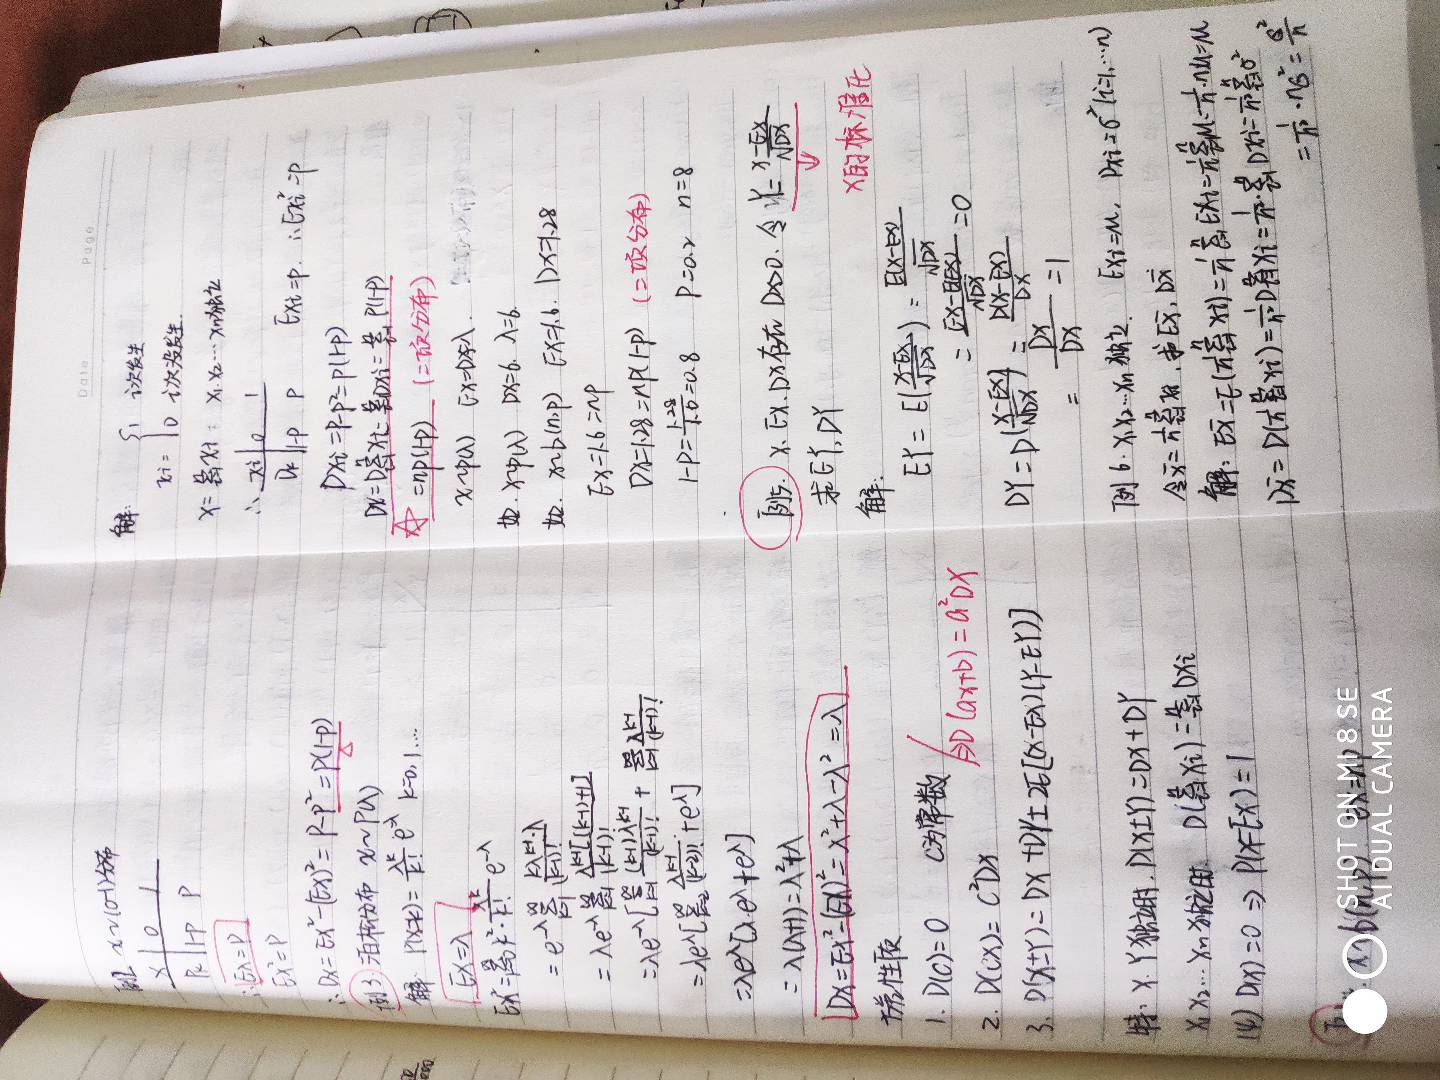 例2 x~(0-1)分布
x | 0 1
Pk | 1-P P
∴ Ex=P
Ex²=P
∴ Dx=Ex²-(Ex)²=P-P²=P(1-P)
例3 泊松分布 x~P(λ)
解: P(x=k)=λ^k/k! e^-λ k=0,1...
Ex=λ
Ex²=∑_{k=0}^∞ k²·λ^k/k! e^-λ
=e^-λ ∑_{k=1}^∞ kλ^{k-1}·λ/(k-1)!
=λe^-λ ∑_{k=1}^∞ λ^{k-1}[(k-1)+1]/(k-1)!
=λe^-λ[∑_{k=1}^∞ (k-1)λ^{k-1}/(k-1)! + ∑_{k=1}^∞ λ^{k-1}/(k-1)!]
=λe^λ[∑_{k=2}^∞ λ^{k-1}/(k-2)! + e^λ]
=λe^λ[λ·e^λ+e^λ]
=λ(λ+1)=λ²+λ
Dx=Ex²-(Ex)²=λ²+λ-λ²=λ
方差性质
1. D(C)=0 C为常数
⇒D(ax+b)=a²Dx
2. D(cx)=C²Dx
3. D(x±Y)=Dx+DY±2E[(x-Ex)(Y-EY)]
特: x.Y独立时. D(x±Y)=Dx+DY
x₁x₂...xn独立时. D(∑_{i=1}^n xi)=∑_{i=1}^n Dxi
(4) D(x)=0 ⇒ P(x=Ex)=1
x~b(n,p) Ex=np
SHOT ON MI 8 SE
AI DUAL CAMERA
Date Page
解: xi={1 i次发生
0 i次没发生.
x=∑_{i=1}^n xi: x₁.x₂...xn独立
∴ xi | 0 1
Pk | 1-P P Exi=p. ∴Exi²=p
Dxi=P-P²=p(1-p)
Dx=D∑_{i=1}^n xi=∑_{i=1}^n Dxi=∑_{i=1}^n P(1-p)
☆ =np(1-p) (二项分布)
x~p(λ) Ex=Dx=λ.
如. x~p(λ) Dx=6. λ=6.
如. x~b(n,p) Ex=1.6. Dx=1.28
Ex=1.6=np
Dx=1.28=np(1-p) (二项分布)
1-P=1.28/1.6=0.8 P=0.2 n=8
例5. x. Ex. Dx存在 Dx>0. 令 Y=(x-Ex)/√Dx
求EY, DY
x的标准化
解:
EY=E((x-Ex)/√Dx)=E(x-Ex)/√Dx
=(Ex-E(Ex))/√Dx=0
DY=D((x-Ex)/√Dx)=D(x-Ex)/Dx
=Dx/Dx=1
例6. x₁x₂...xn独立. Exi=μ, Dxi=σ²(i=1,...n)
令x̄=1/n ∑_{i=1}^n xi, 求Ex̄, Dx̄
解: Ex̄=E(1/n ∑_{i=1}^n xi)=1/n ∑_{i=1}^n Exi=1/n ∑_{i=1}^n μ=1/n·nμ=μ
Dx̄=D(1/n ∑_{i=1}^n xi)=1/n² D∑_{i=1}^n xi=1/n²·∑_{i=1}^n Dxi=1/n² ∑_{i=1}^n σ²
=1/n²·nσ²=σ²/n